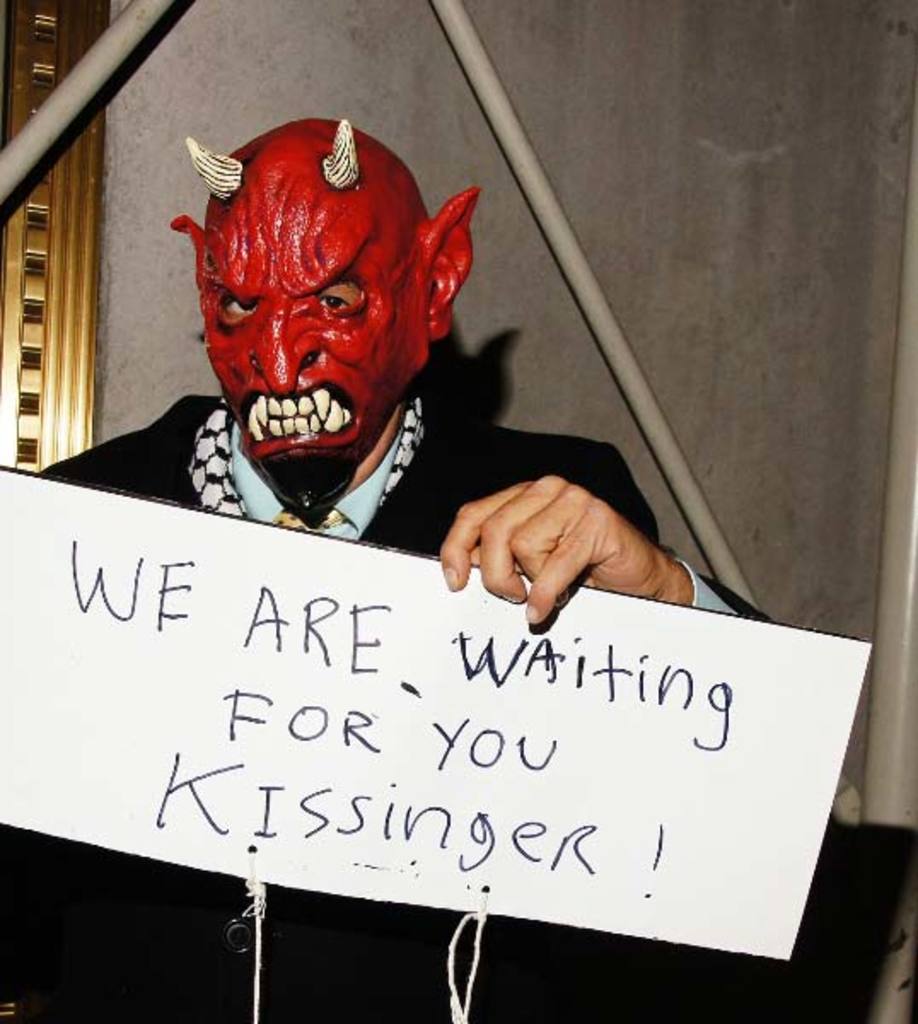 WE ARE WAiting
FOR YOU
KIssingeR!